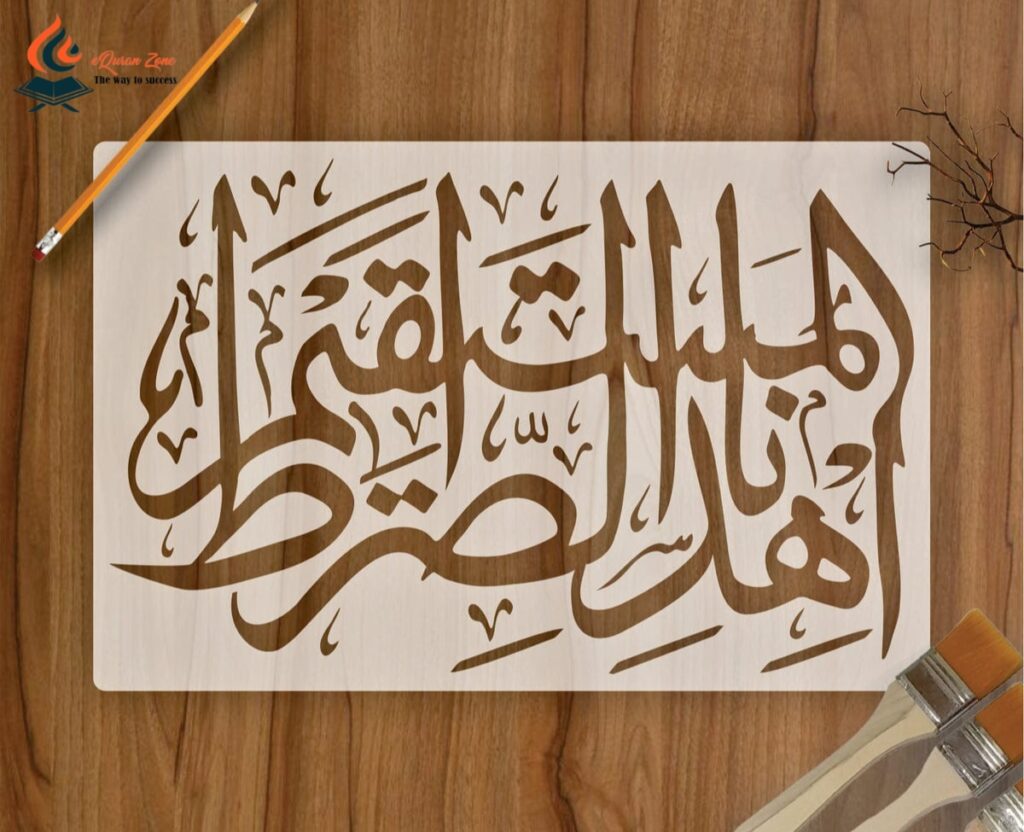 eQuran Zone
The way to success
اهْدِنَا الصِّرَاطَ الْمُسْتَقِيمَ